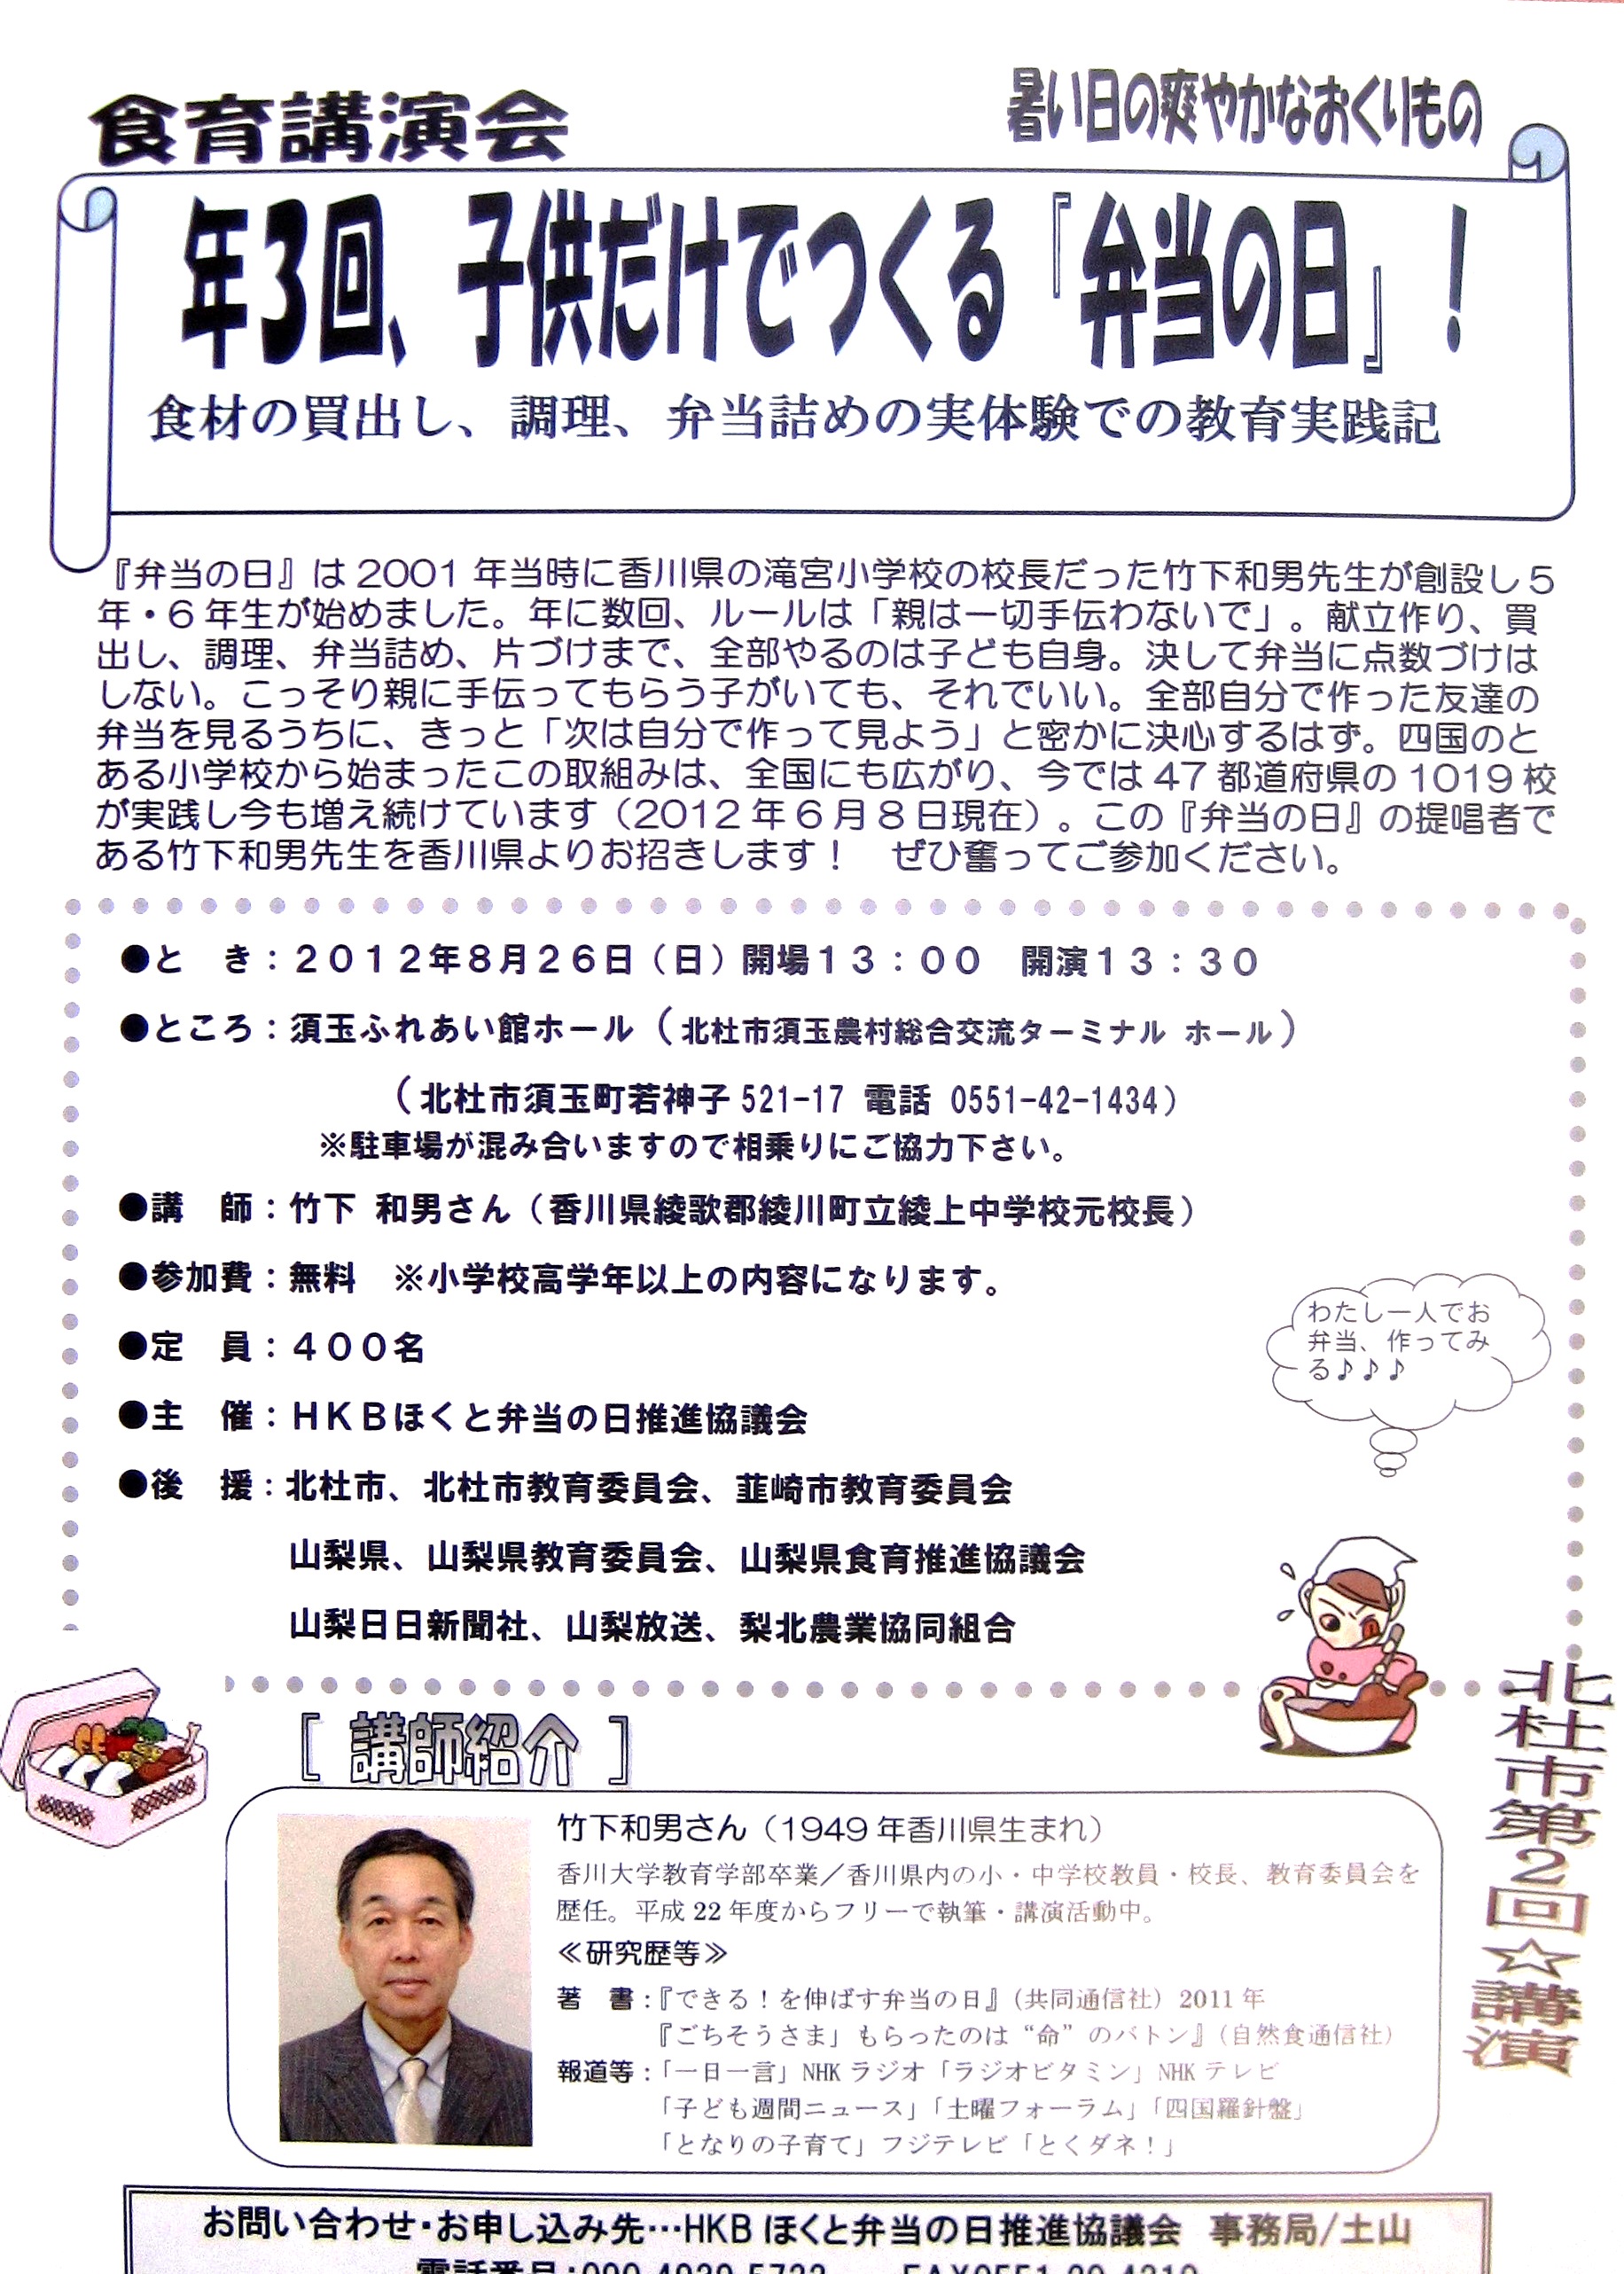 食育講演会
暑い日の爽やかなおくりもの
年3回、子供だけでつくる『弁当の日』！
食材の買出し、調理、弁当詰めの実体験での教育実践記
『弁当の日』は2001年当時に香川県の滝宮小学校の校長だった竹下和男先生が創設し5
年・6年生が始めました。年に数回、ルールは「親は一切手伝わないで」。献立作り、買
出し、調理、弁当詰め、片づけまで、全部やるのは子ども自身。決して弁当に点数づけは
しない。こっそり親に手伝ってもらう子がいても、それでいい。全部自分で作った友達の
弁当を見るうちに、きっと「次は自分で作って見よう」と密かに決心するはず。四国のと
ある小学校から始まったこの取組みは、全国にも広がり、今では47都道府県の1019校
が実践し今も増え続けています（2012年6月8日現在）。この『弁当の日』の提唱者で
ある竹下和男先生を香川県よりお招きします！　ぜひ奮ってご参加ください。
●と　き：２０１２年８月２６日（日）開場１３：００　開演１３：３０
●ところ：須玉ふれあい館ホール（北杜市須玉農村総合交流ターミナル ホール）
（北杜市須玉町若神子521-17 電話 0551-42-1434）
※駐車場が混み合いますので相乗りにご協力下さい。
●講　師：竹下 和男さん（香川県綾歌郡綾川町立綾上中学校元校長）
●参加費：無料　※小学校高学年以上の内容になります。
●定　員：４００名
●主　催：ＨＫＢほくと弁当の日推進協議会
●後　援：北杜市、北杜市教育委員会、韮崎市教育委員会
山梨県、山梨県教育委員会、山梨県食育推進協議会
山梨日日新聞社、山梨放送、梨北農業協同組合
わたし一人でお
弁当、作ってみ
る♪♪♪
北杜市第2回☆講演
［ 講師紹介 ］
竹下和男さん（1949年香川県生まれ）
香川大学教育学部卒業／香川県内の小・中学校教員・校長、教育委員会を
歴任。平成22年度からフリーで執筆・講演活動中。
≪研究歴等≫
著　書：『できる！を伸ばす弁当の日』（共同通信社）2011年
『ごちそうさま」もらったのは“命”のバトン』（自然食通信社）
報道等：「一日一言」NHKラジオ「ラジオビタミン」NHKテレビ
「子ども週間ニュース」「土曜フォーラム」「四国羅針盤」
「となりの子育て」フジテレビ「とくダネ！」
お問い合わせ・お申し込み先…HKBほくと弁当の日推進協議会　事務局/土山
電話番号：090-4939-5732　FAX0551-20-4210